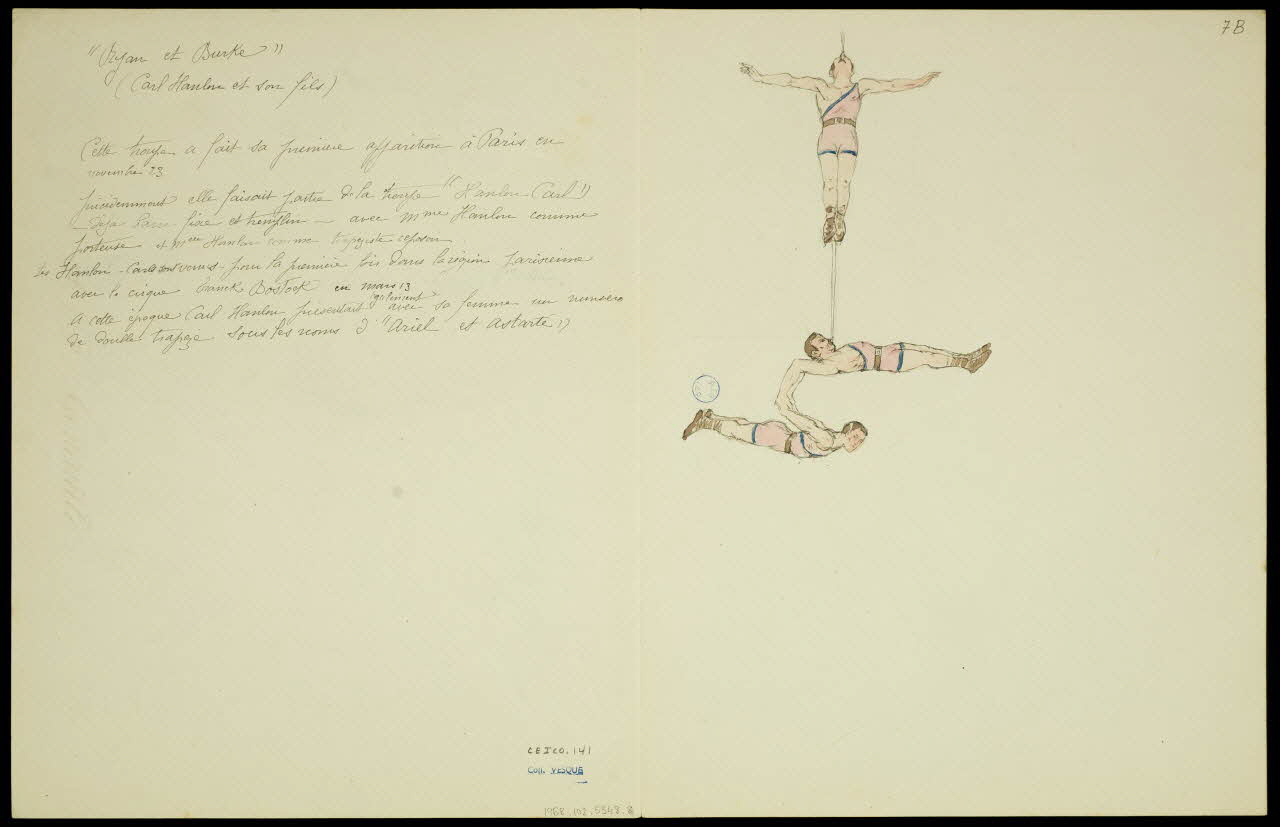 "Ryan et Burke"
(Carl Hanlon et son fils)
Cette troupe a fait sa première apparition à Paris en
novembre 23
précédemment elle faisait partie de la troupe "Hanlon Carl"
fixe et tremplin - avec Mme Hanlon comme
porteuse et Melle Hanlon comme trapéziste
les Hanlon-Carl sont venus pour la première fois dans la région parisienne
avec le cirque Franck Bostock en mars 13
A cette époque Carl Hanlon présentait également avec sa femme un numéro
de double trapèze sous les noms d'"Ariel et Astarté"
7B
CEICO.141
Coll. VESQUE